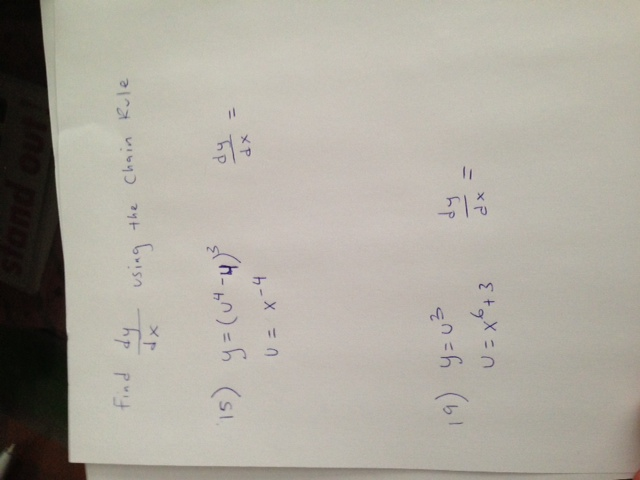 stand out!
Find dy/dx using the Chain Rule
15) y=(u⁴-4)³ dy/dx =
u = x-4
19) y=u³ dy/dx =
u=x⁶+3